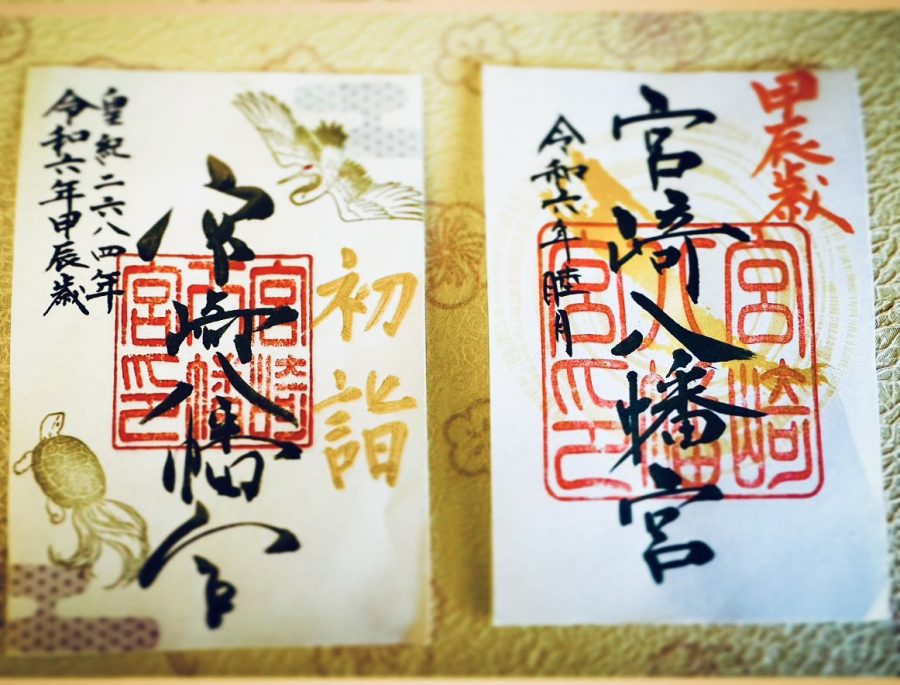 初詣
宮崎八幡宮
宮崎
八幡
宮印
皇紀二六八四年
令和六年甲辰歳
甲辰歳
宮崎八幡宮
宮崎
八幡
宮印
令和六年睦月